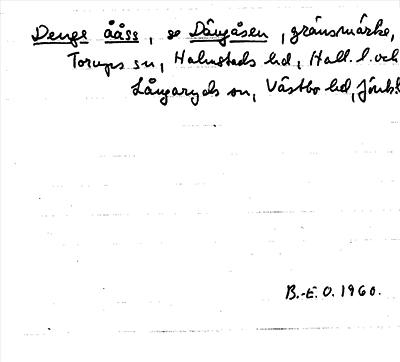 Denge ååss, se Dängåsen, gränsmärke,
Torups sn, Halmstads hd, Hall. l. och
Långaryds sn, Västbo hd, Jönk.
B.-E. O. 1960.